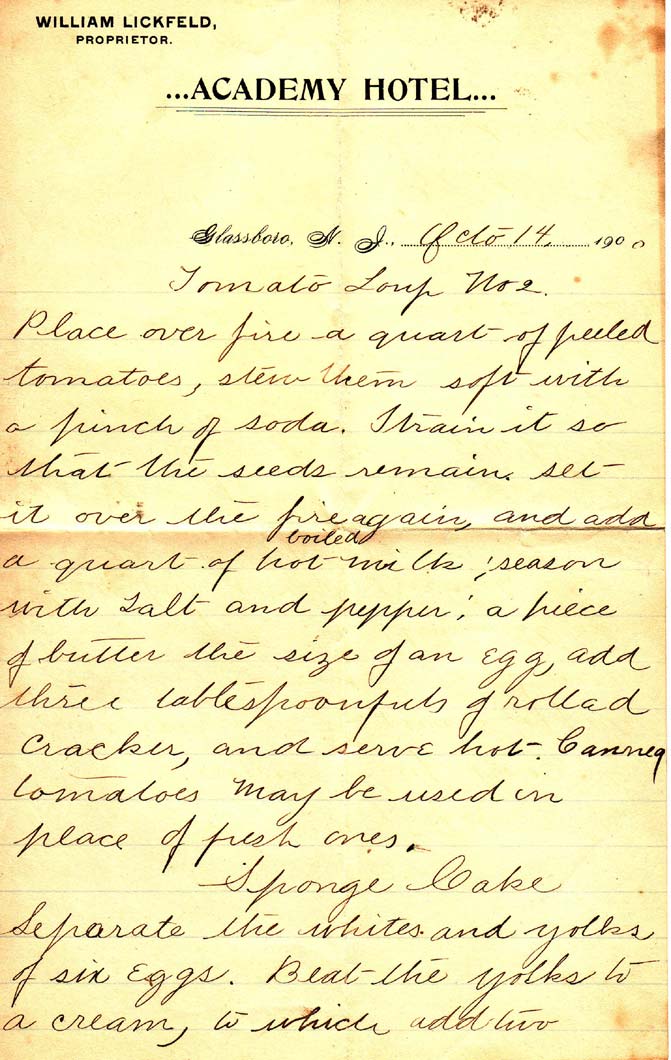 WILLIAM LICKFELD,
PROPRIETOR.
...ACADEMY HOTEL...
Glassboro, N. J., Octo 14, 1900
Tomato Soup No 2.
Place over fire a quart of peeled
tomatoes, stew them soft with
a pinch of soda. Strain it so
that the seeds remain. set
it over the fire again, and add
boiled
a quart of hot milk; season
with Salt and pepper; a piece
of butter the size of an Egg, add
three tablespoonfuls of rollad
Cracker, and serve hot. Canned
tomatoes May be used in
place of fresh ones.
Sponge Cake
Separate the whites and yolks
of six Eggs. Beat the yolks to
a cream, to which add two